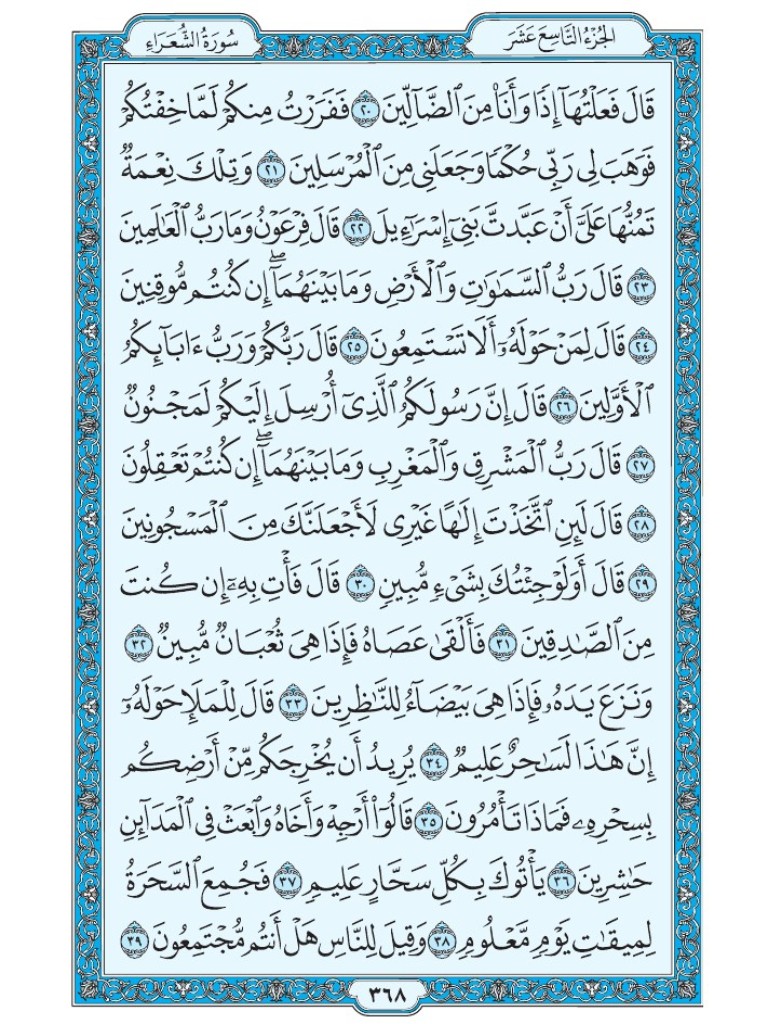 سُورَةُ الشُّعَرَاءِ
الجُزْءُ التَّاسِعَ عَشَرَ
قَالَ فَعَلْتُهَآ إِذًا وَأَنَا۠ مِنَ ٱلضَّآلِّينَ ٢٠ فَفَرَرْتُ مِنكُمْ لَمَّا خِفْتُكُمْ
فَوَهَبَ لِى رَبِّى حُكْمًا وَجَعَلَنِى مِنَ ٱلْمُرْسَلِينَ ٢١ وَتِلْكَ نِعْمَةٌ
تَمُنُّهَا عَلَىَّ أَنْ عَبَّدتَّ بَنِىٓ إِسْرَٰٓءِيلَ ٢٢ قَالَ فِرْعَوْنُ وَمَا رَبُّ ٱلْعَٰلَمِينَ
٢٣ قَالَ رَبُّ ٱلسَّمَٰوَٰتِ وَٱلْأَرْضِ وَمَا بَيْنَهُمَآ ۖ إِن كُنتُم مُّوقِنِينَ
٢٤ قَالَ لِمَنْ حَوْلَهُۥٓ أَلَا تَسْتَمِعُونَ ٢٥ قَالَ رَبُّكُمْ وَرَبُّ ءَابَآئِكُمُ
ٱلْأَوَّلِينَ ٢٦ قَالَ إِنَّ رَسُولَكُمُ ٱلَّذِىٓ أُرْسِلَ إِلَيْكُمْ لَمَجْنُونٌ
٢٧ قَالَ رَبُّ ٱلْمَشْرِقِ وَٱلْمَغْرِبِ وَمَا بَيْنَهُمَآ ۖ إِن كُنتُمْ تَعْقِلُونَ
٢٨ قَالَ لَئِنِ ٱتَّخَذْتَ إِلَٰهًا غَيْرِى لَأَجْعَلَنَّكَ مِنَ ٱلْمَسْجُونِينَ
٢٩ قَالَ أَوَلَوْ جِئْتُكَ بِشَىْءٍ مُّبِينٍ ٣٠ قَالَ فَأْتِ بِهِۦٓ إِن كُنتَ
مِنَ ٱلصَّٰدِقِينَ ٣١ فَأَلْقَىٰ عَصَاهُ فَإِذَا هِىَ ثُعْبَانٌ مُّبِينٌ ٣٢
وَنَزَعَ يَدَهُۥ فَإِذَا هِىَ بَيْضَآءُ لِلنَّٰظِرِينَ ٣٣ قَالَ لِلْمَلَإِ حَوْلَهُۥٓ
إِنَّ هَٰذَا لَسَٰحِرٌ عَلِيمٌ ٣٤ يُرِيدُ أَن يُخْرِجَكُم مِّنْ أَرْضِكُم
بِسِحْرِهِۦ فَمَاذَا تَأْمُرُونَ ٣٥ قَالُوٓا۟ أَرْجِهْ وَأَخَاهُ وَٱبْعَثْ فِى ٱلْمَدَآئِنِ
حَٰشِرِينَ ٣٦ يَأْتُوكَ بِكُلِّ سَحَّارٍ عَلِيمٍ ٣٧ فَجُمِعَ ٱلسَّحَرَةُ
لِمِيقَٰتِ يَوْمٍ مَّعْلُومٍ ٣٨ وَقِيلَ لِلنَّاسِ هَلْ أَنتُم مُّجْتَمِعُونَ ٣٩
٣٦٨